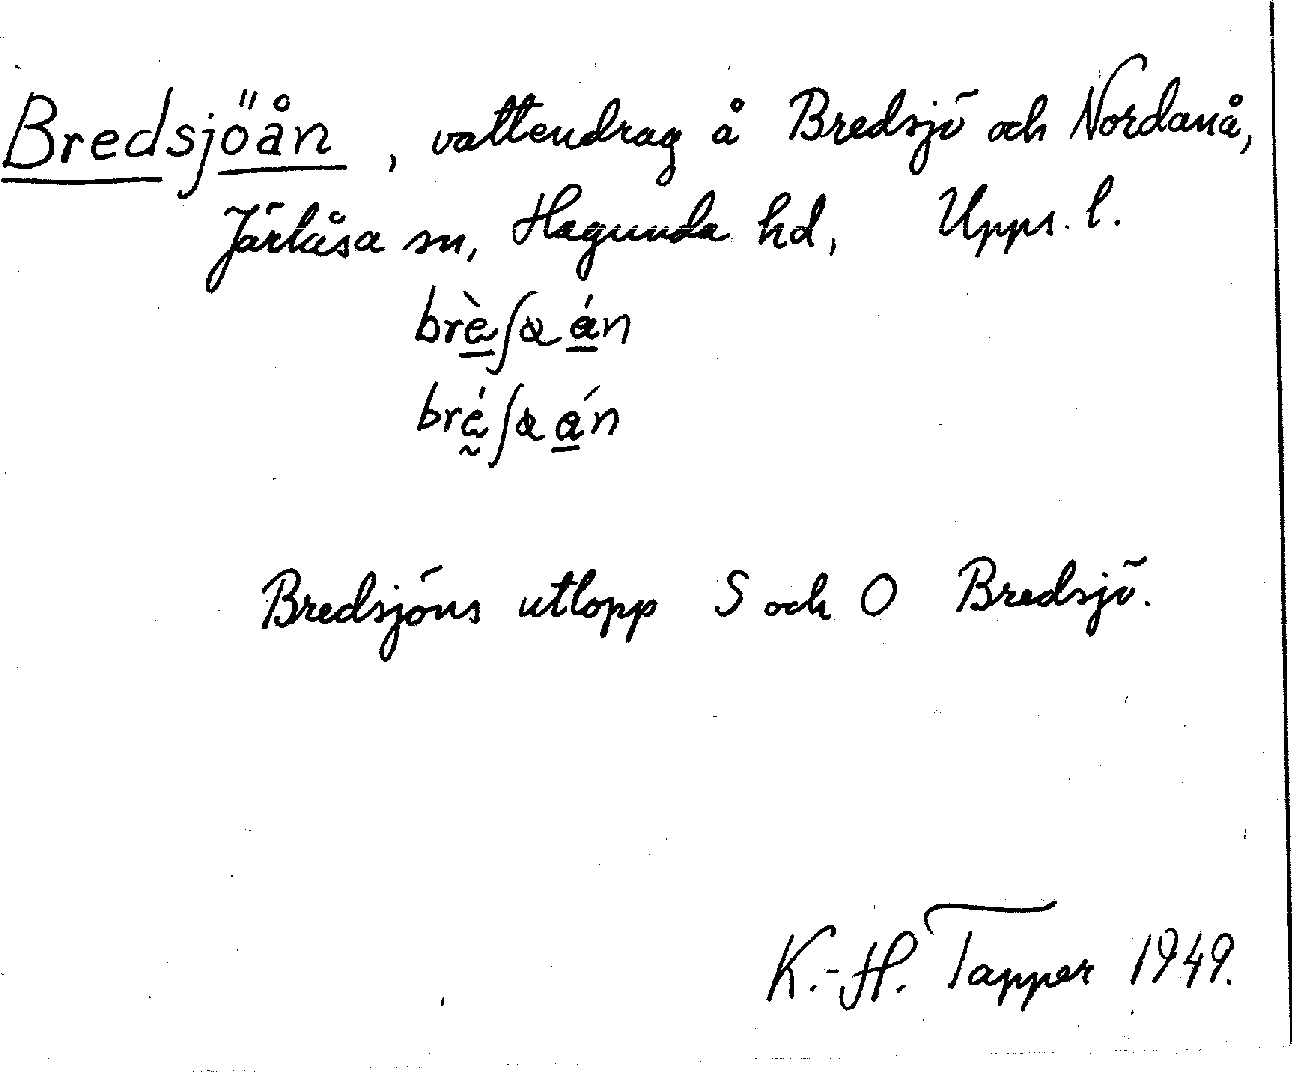 Bredsjöån, vattendrag å Bredsjö och Nordanå,
Järlåsa sn, Hagunda hd, Upps. l.
Bredsjöns utlopp S och O Bredsjö.
K.-H. Tapper 1949.